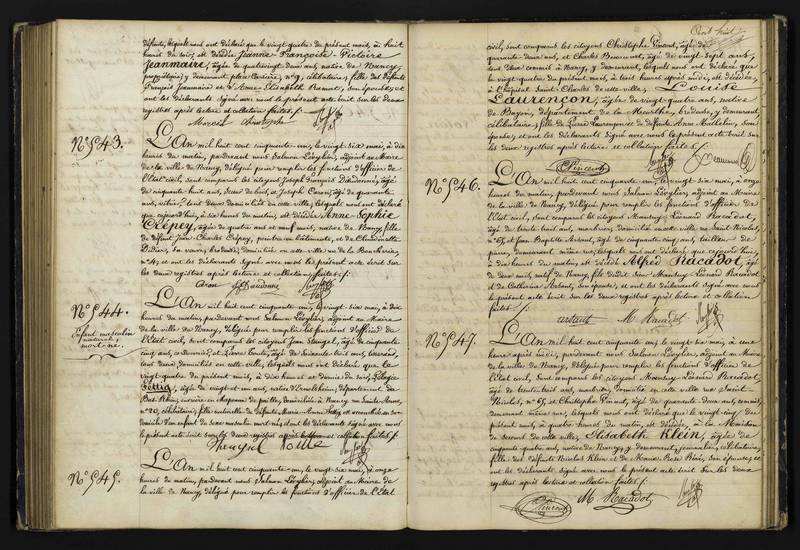 défunte, lesquels nous ont déclaré que le vingt quatre du présent mois, à huit
heures du soir, est décédée Jeanne Françoise Victoire
Jeanmaire, âgée de quatrevingt deux ans, native de Nancy,
propriétaire, y demeurant place Carrière, n° 9, célibataire, fille des défunts
François Jeanmaire et d'Anne Elisabeth son épouse, et
ont les déclarants signé avec nous le présent acte écrit sur les deux
registres après lecture et collation faites /.
N° 543.
L'An mil huit cent cinquante-un, le vingt six mai, à dix
heures du matin, pardevant nous Salmon Lévylier, adjoint au Maire
de la ville de Nancy, délégué pour remplir les fonctions d'officier de
l'Etat civil, sont comparus les citoyens Joseph François Dieudonné, âgé
de cinquante huit ans, et Joseph âgé de quarante
ans, tous deux domiciliés en cette ville, lesquels nous ont déclaré
que aujourd'hui, à six heures du matin, est décédée Anne Sophie
Crépey, âgée de quatre ans et neuf mois, native de Nancy, fille
de défunt Jean Charles Crépey, peintre en bâtiments, et de
Didier, sa veuve, domiciliée en cette ville rue de la
n° 41 et ont les déclarants signé avec nous le présent acte écrit sur
les deux registres après lecture et collation faites /.
N° 544.
Enfant masculin
naturel,
mort-né.
L'An mil huit cent cinquante un, le vingt-six mai, à dix
heures du matin, pardevant nous Salmon Lévylier, adjoint au Maire
de la ville de Nancy, délégué pour remplir les fonctions d'officier de
l'Etat civil, sont comparus les citoyens Jean Stengel, âgé de cinquante
cinq ans, cordonnier, et âgé de soixante trois ans,
tous deux domiciliés en cette ville, lesquels nous ont déclaré que le
vingt quatre du présent mois, à dix heures et demie du soir, Pélagie
Fettig, âgée de vingt et un ans, native d' département du
Bas-Rhin, ouvrière en chapeaux de paille, domiciliée à Nancy rue
n° 20, célibataire, fille naturelle de défunte Marie Anne Fettig est accouchée en son
domicile d'un enfant du sexe masculin mort-né, dont les déclarants signé avec nous
le présent acte écrit sur les deux registres après lecture et collation faites /.
N° 545.
L'An mil huit cent cinquante-un, le vingt six mai, à onze
heures du matin, pardevant nous Salmon Lévylier, adjoint au Maire de
la ville de Nancy, délégué pour remplir les fonctions d'officier de l'Etat
civil, sont comparus les citoyens Christophe Vincent, âgé de
quarante deux ans, et Charles Beaucourt, âgé de vingt sept ans,
tous deux commis à Nancy, y demeurant, lesquels nous ont déclaré que
le vingt quatre du présent mois, à trois heures après midi, est décédée,
à l'hôpital Saint Charles de cette ville, Louise
Laurençon, âgée de vingt quatre ans, native
de Bayon, département de la Meurthe, brodeuse, y demeurant,
célibataire, fille de Louis Laurençon et de défunte Anne son
épouse, et ont les déclarants signé avec nous le présent acte écrit sur
les deux registres après lecture et collation faites /.
Vincent
N° 546.
L'An mil huit cent cinquante un, le vingt six mai, à onze
heures du matin, pardevant nous Salmon Lévylier, adjoint au Maire
de la ville de Nancy, délégué pour remplir les fonctions d'officier de
l'Etat civil, sont comparus les citoyens Léonard Racadot,
âgé de trente huit ans, marbrier, domicilié en cette ville rue Saint Nicolas,
n° 65, et Jean Baptiste âgé de cinquante cinq ans, tailleur de
pierre, demeurant même rue, lesquels nous ont déclaré que aujourd'hui,
à dix heures du matin, est décédé Alfred Racadot, âgé
de deux mois, natif de Nancy, fils dudit Sieur Léonard Racadot
et de Catherine son épouse, et ont les déclarants signé avec nous
le présent acte écrit sur les deux registres après lecture et collation
faites /.
M. Racadot
N° 547.
L'An mil huit cent cinquante un, le vingt six mai, à une
heure après midi, pardevant nous Salmon Lévylier, adjoint au Maire
de la ville de Nancy, délégué pour remplir les fonctions d'officier de
l'Etat civil, sont comparus les citoyens Léonard Racadot,
âgé de trente huit ans, marbrier, domicilié en cette ville rue Saint
Nicolas, n° 65, et Christophe Vincent, âgé de quarante deux ans, commis,
demeurant même rue, lesquels nous ont déclaré que le vingt cinq du
présent mois, à quatre heures du matin, est décédée, à la Maison
de Secours de cette ville, Elisabeth Klein, âgée de
cinquante quatre ans, native de Nancy, y demeurant, journalière, célibataire,
fille des défunts Nicolas Klein et de Marie son épouse, et
ont les déclarants signé avec nous le présent acte écrit sur les deux
registres après lecture et collation faites /.
Vincent
M. Racadot